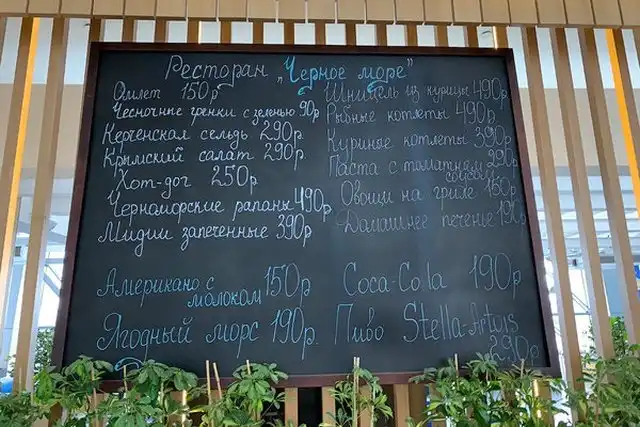 Ресторан „Черное море"
Омлет 150р
Чесночные гренки с зеленью 90р
Керченская сельдь 290р.
Крымский салат 290р.
Хот-дог 250р
Черноморские рапаны 490р
Мидии запеченные 390р
Американо с
молоком 150р
Ягодный морс 190р.
Шницель из курицы 490р.
Рыбные котлеты 490р.
Куриные котлеты 390р
Паста с томатным
соусом 290р
Овощи на гриле 150р
Домашнее печение 190р
Coca-Cola 190р
Пиво Stella-Artois
290р